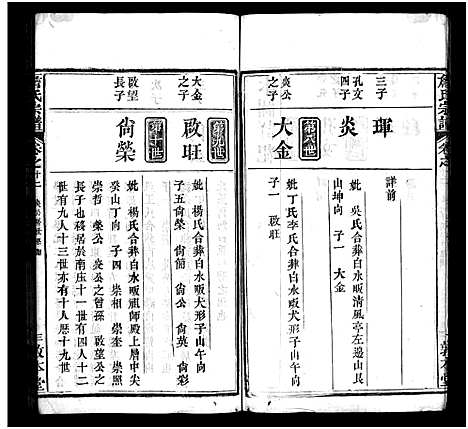 詹氏宗譜
敦本堂
三子
琿
詳前
孔文
四子
炎
妣吳氏合葬白水畈清風亭左邊山艮
山坤向 子一 大金
第八世
炎公
之子
大金
妣丁氏李氏合葬白水畈犬形子山午向
子一 啟旺
第九世
大金
之子
啟旺
妣楊氏合葬白水畈犬形子山午向
子五 尚榮 尚簡 尚公 尚英 尚彩
第十世
啟望
長子
尚榮
妣楊氏合葬白水畈祖師殿上層中尖
癸山丁向 子四 崇相 崇奎 崇照
崇哲 榮公炎公之曾孫 啟望公之
長也移居於南庄十一世有四人十二
世有九人十三世亦有十人歷十九世
詹氏宗譜
敦本堂